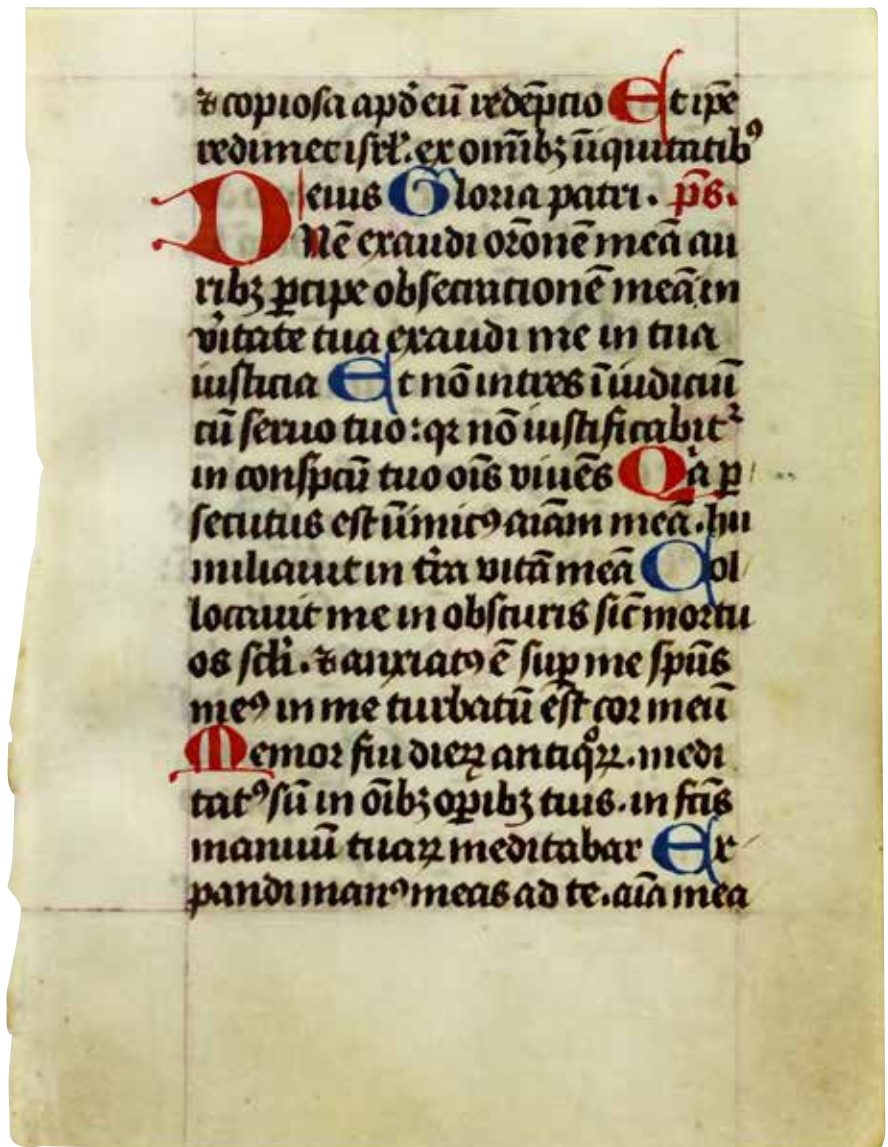 ⁊ copiosa apđ eū redēptio Et ip̄e
redimet isrl̓. ex om̄ibꝫ iniquitatibꝰ
eius Gloria patri. p̄s.
Dn̄e exaudi or̄onē meā au
ribꝫ ꝑcipe obsecrationē meā in
v̓itate tua exaudi me in tua
iusticia Et nō intres ī iudiciū
cū seruo tuo: qꝛ nō iustificabitᷣ
in conspc̄u tuo oīs viuēs Qͥa ꝑ
secutus est inimicꝰ aīam meā. hu
miliauit in t̓ra vitā meā Col
locauit me in obscuris sic̄ mortu
os sc̄li. ⁊ anxiatꝰ ē suꝑ me spūs
meꝰ in me turbatū est cor meū
Memor fui dieꝝ antiqͦꝝ. medi
tatꝰ sū in oībꝫ oꝑibꝫ tuis. in fc̄is
manuū tuaꝝ meditabar Ex
pandi manꝰ meas ad te. aīa mea